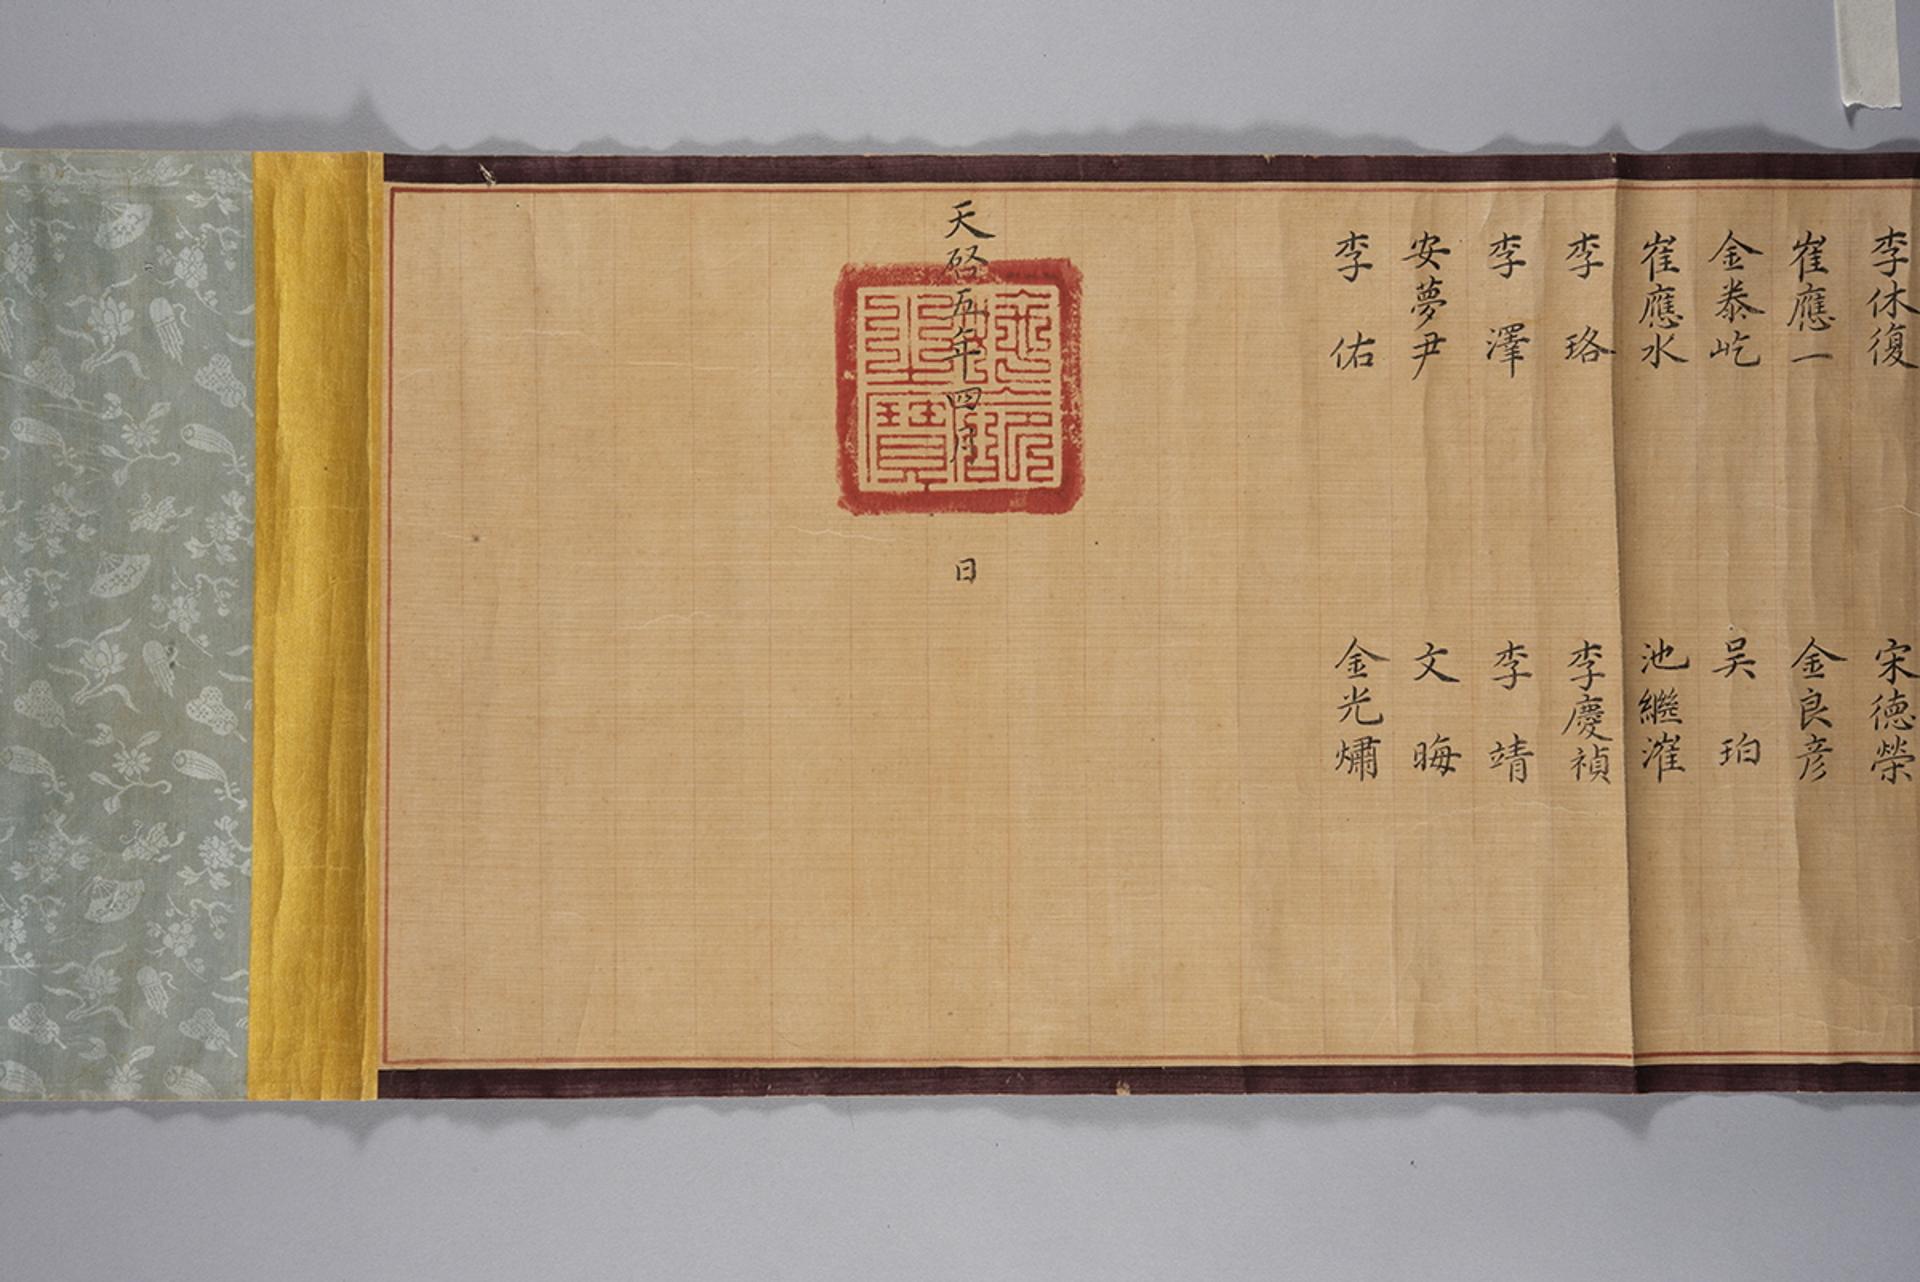 李休復 宋德榮
崔應一 金良彦
金泰屹 吴珀
崔應水 池繼漼
李珞 李慶禎
李澤 李靖
安夢尹 文晦
李佑 金光熽
天啓五年四月 日
施命之寶